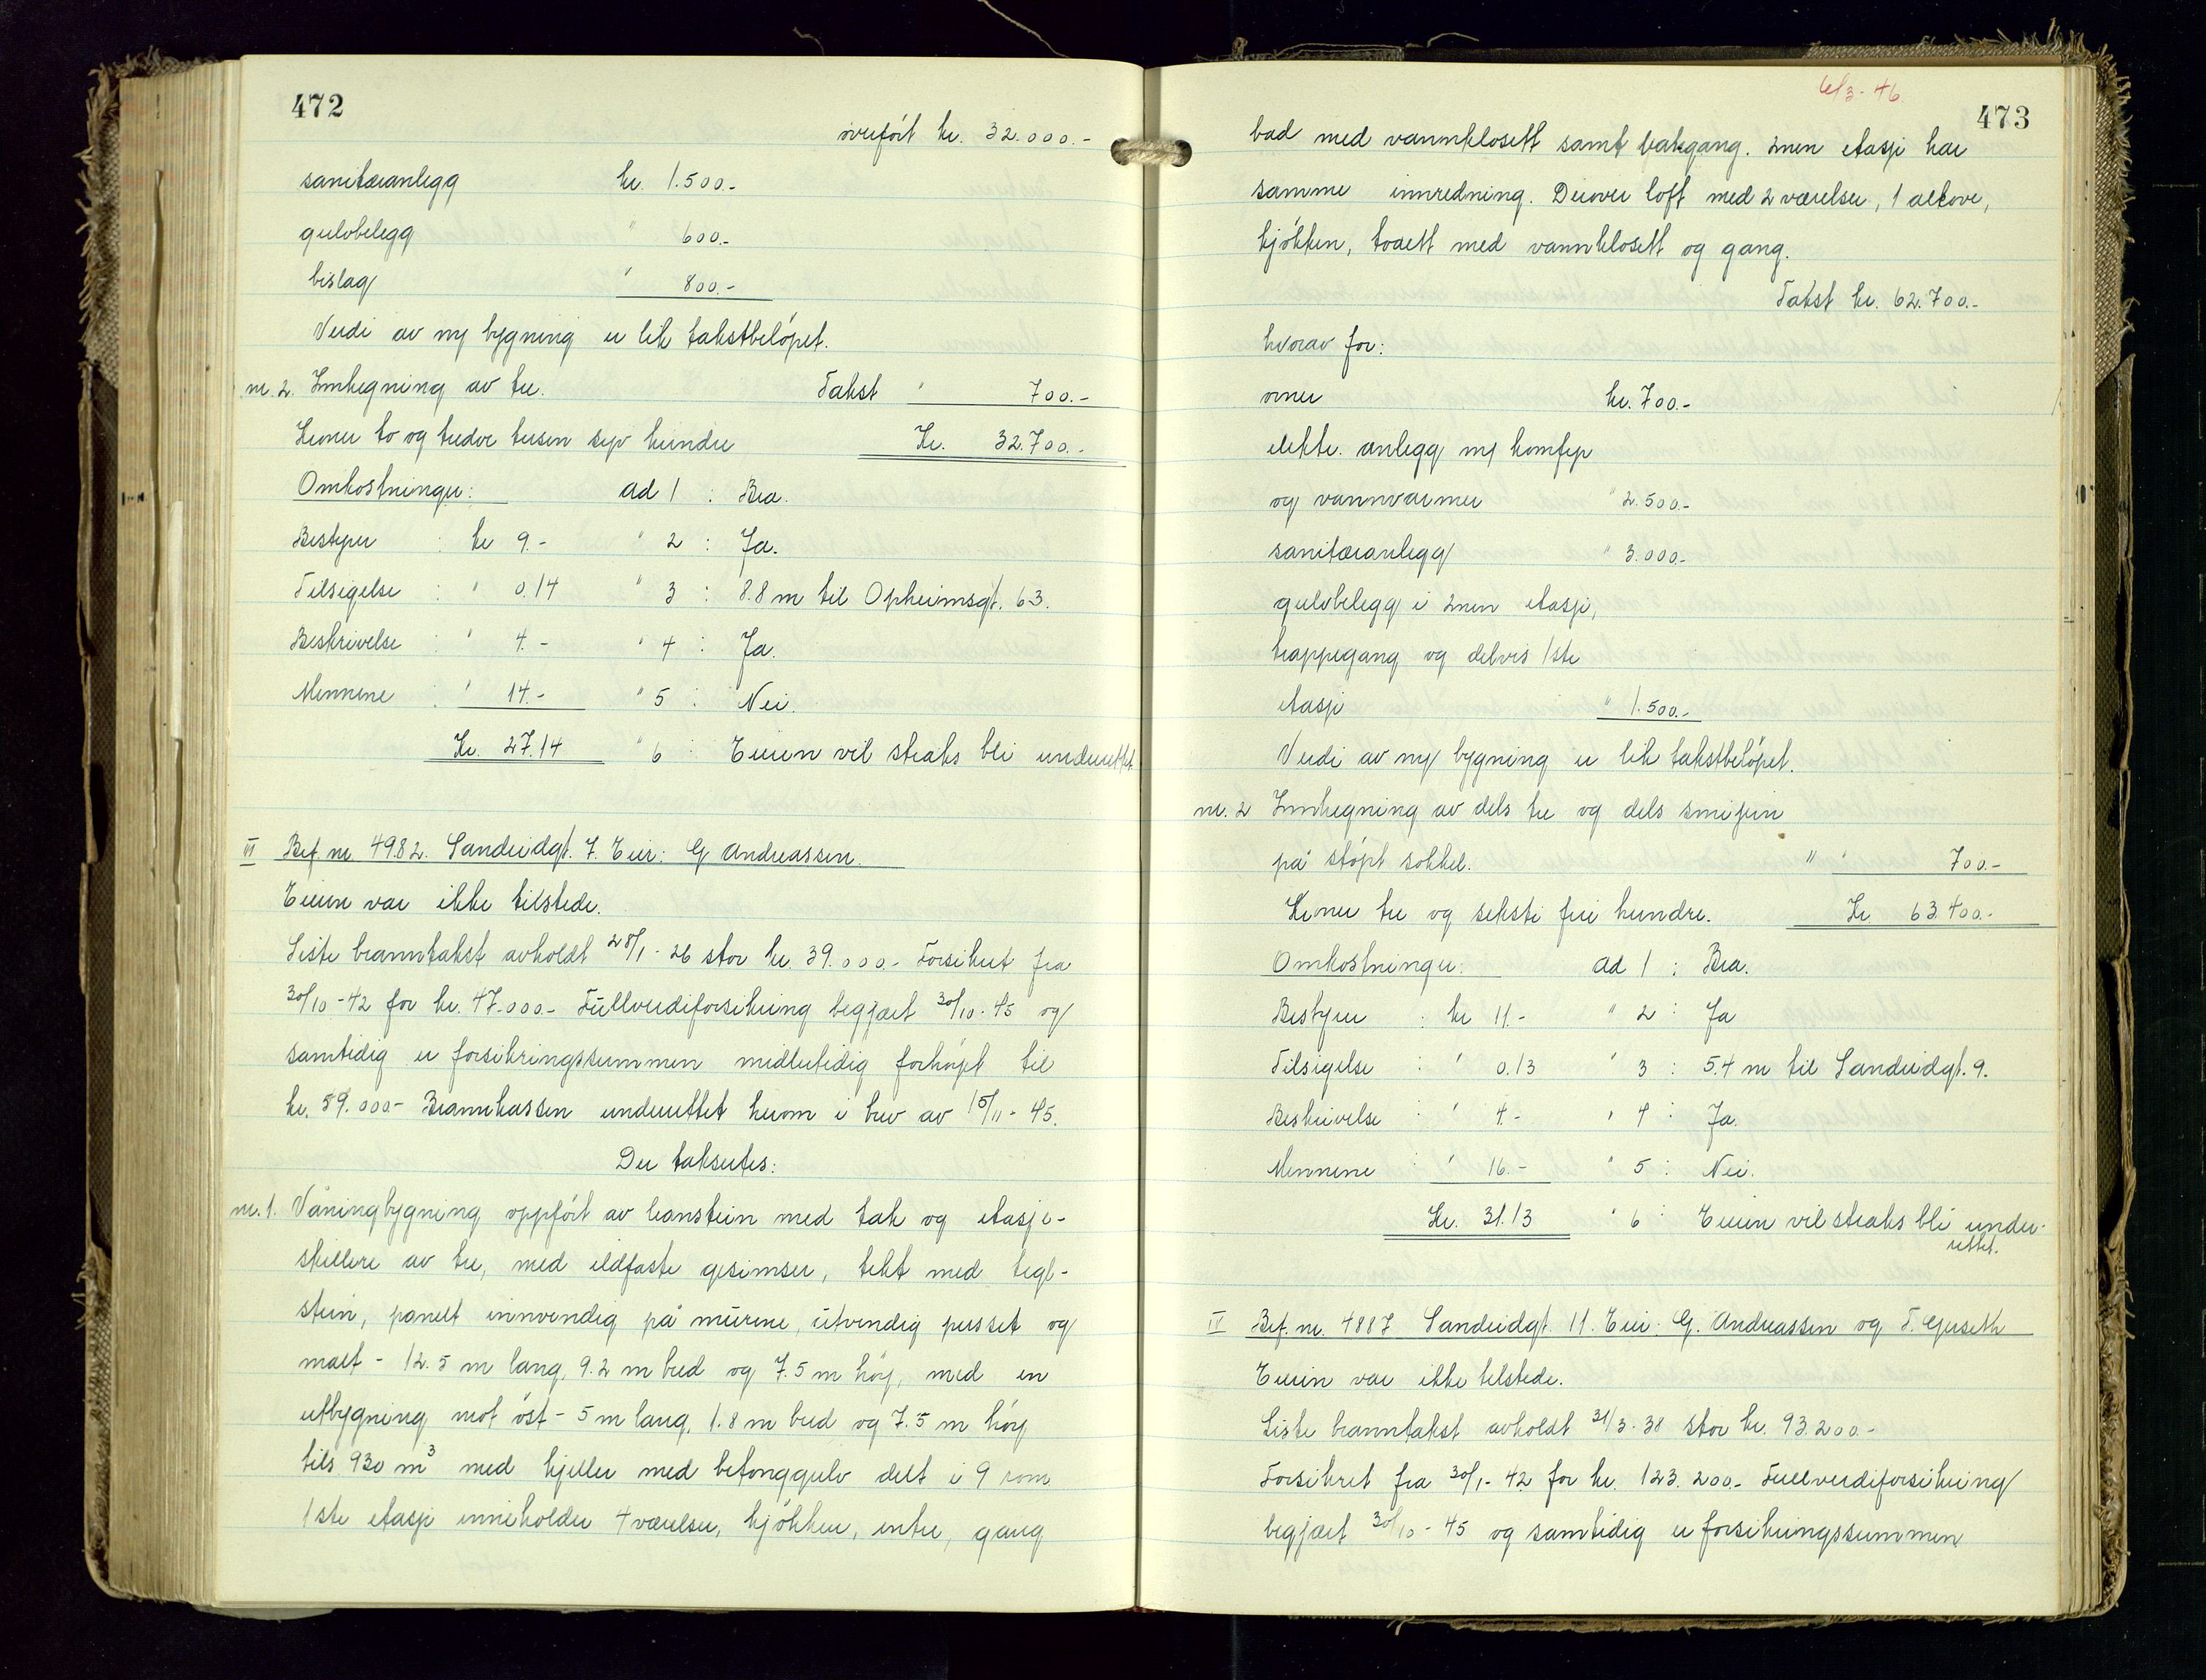 472
overført kr. 32.000.-
sanitæranlegg kr. 1.500.-
gulvbelegg " 600.-
bislag " 800.-
Verdi av ny bygning er lik takstbeløpet.
nr. 2. Innhegning av tre. Takst " 700.-
Kroner to og tredve tusen syv hundre Kr. 32.700.-
Omkostninger: ad 1 : Bra.
Bestyrer : kr 9.- " 2 : Ja.
Tilsigelse : " 0.14 " 3 : 8.8 m til Opheimsgt. 63.
Beskrivelse : " 4.- " 4 : Ja.
Mennene : " 14.- " 5 : Nei.
Kr. 27.14 " 6 : Eieren vil straks bli underrettet.
III Bef. nr 4982. Sandeidgt. 7. Eier: G Andreassen.
Eieren var ikke tilstede.
Siste branntakst avholdt 28/1-26 stor kr. 39.000.- Forsikret fra
30/10-42 for kr. 47.000.- Fullverdiforsikring begjært 30/10-45 og
samtidig er forsikringssummen midlertidig forhøyet til
kr. 59.000.- Brannkassen underrettet herom i brev av 15/11-45.
Der takseres:
nr. 1. Våningbygning oppført av leanstein med tak og etasje-
skillere av tre, med ildfaste gesimser, tekt med tegl-
stein, panelt innvendig på murene, utvendig pusset og
malt - 12.5 m lang, 9.2 m bred og 7.5 m høy, med en
utbygning mot øst - 5 m lang, 1.8 m bred og 7.5 m høy
tils. 930 m³ med kjeller med betonggulv delt i 9 rom
1ste etasje inneholder 4 værelser, kjøkken, entre, gang
6/3-46.
473
bad med vannklosett samt bakgang. 2nen etasje har
samme innredning. Derover loft med 2 værelser, 1 alkove,
kjøkken, toalett med vannklosett og gang.
Takst kr. 62.700.-
hvorav for:
ovner kr. 700.-
elektr. anlegg m/ komfyr
og vannvarmer " 2.500.-
sanitæranlegg " 3.000.-
gulvbelegg i 2nen etasje,
trappegang og delvis 1ste
etasje " 1.500.-
Verdi av ny bygning er lik takstbeløpet.
nr. 2 Innhegning av dels tre og dels smijern
på støpt sokkel. " " 700.-
Kroner tre og seksti fire hundre. Kr. 63.400.-
Omkostninger: ad 1 : Bra.
Bestyrer : kr 11.- " 2 : Ja
Tilsigelse : " 0.13 " 3 : 5.4 m til Sandeidgt. 9.
Beskrivelse : " 4.- " 4 : Ja.
Mennene : " 16.- " 5 : Nei.
Kr. 31.13 " 6 : Eieren vil straks bli under-
rettet.
IV Bef. nr. 4887 Sandeidgt. 11. Eier: G. Andreassen og T. Gjerseth
Eieren var ikke tilstede.
Siste branntakst avholdt 31/3-38 stor kr. 93.200.-
Forsikret fra 30/1-42 for kr. 123.200.- Fullverdiforsikring
begjært 30/10-45 og samtidig er forsikringssummen